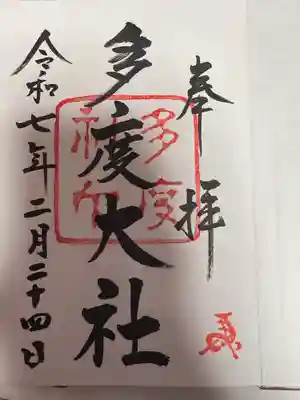 奉拝
多度大社
令和七年二月二十四日